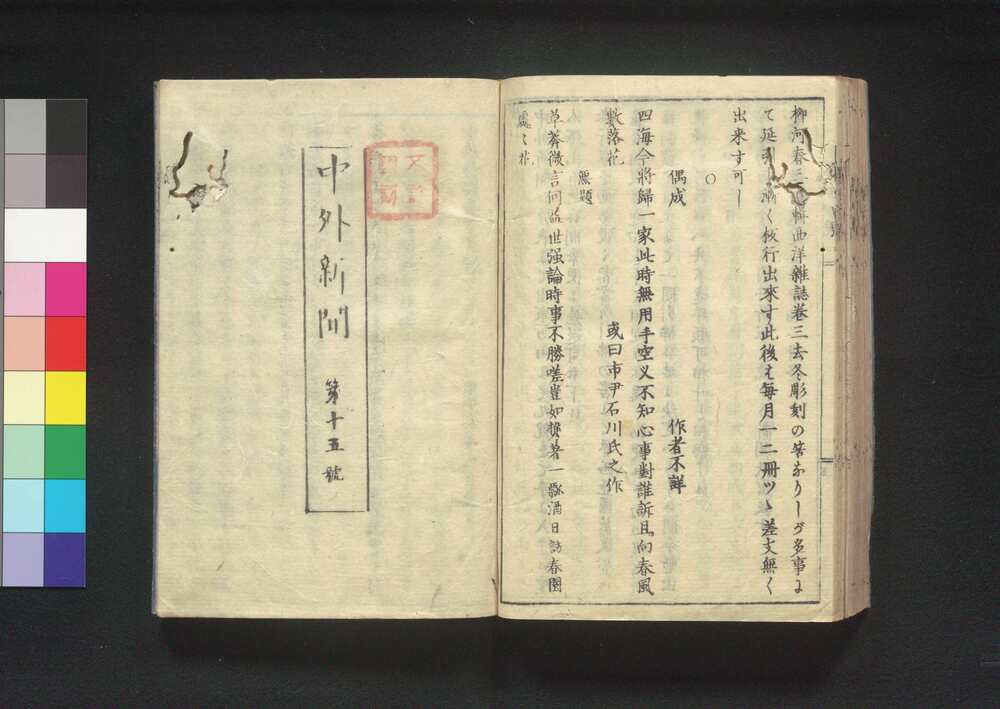 柳河春三輯西洋雜誌巻三去冬彫刻の筈なりしが多事に
て延引し漸く校行出來す此後は毎月一二冊ツヽ差支無く
出来す可し
○
偶成 作者不詳
四海今將歸一家此時無用手空叉不知心事對誰訴且向春風
數落花
無題 或曰市尹石川氏之作
草莽微言何益世强論時事不勝嗟豈如攢著一瓢酒日訪春園
處々花
中外新聞 第十五號